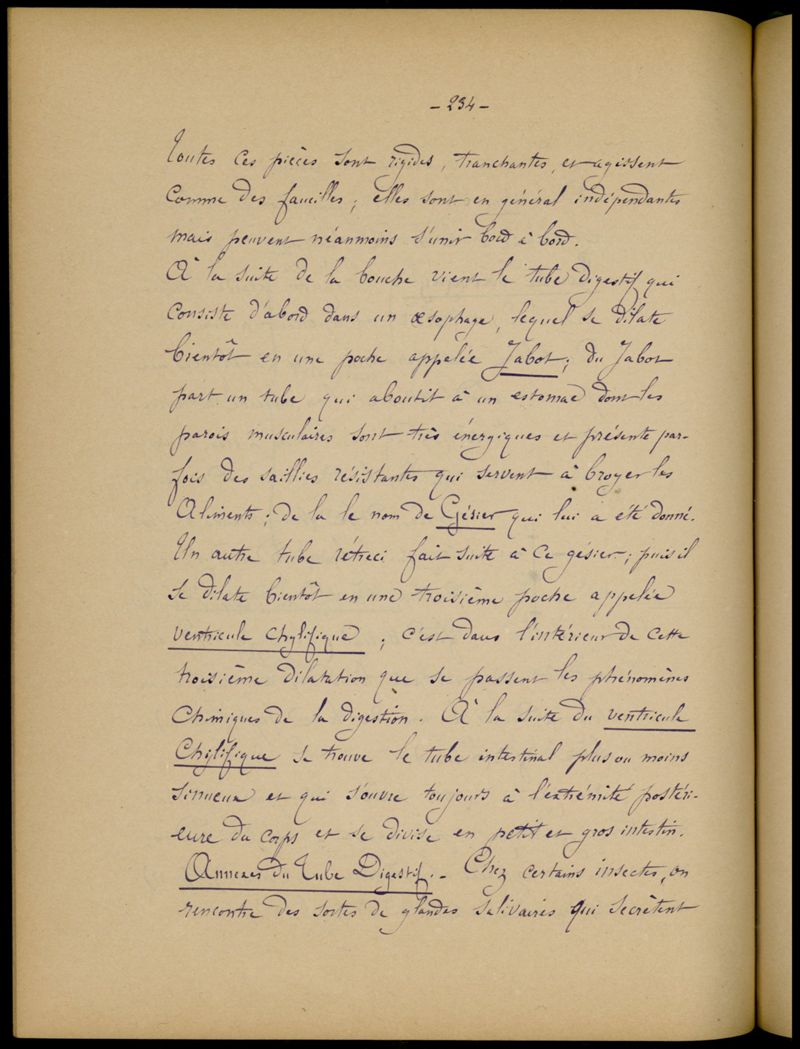 - 234 -
Toutes ces pièces sont rigides, tranchantes, et agissent
comme des faucilles ; elles sont en général indépendantes
mais peuvent néanmoins s'unir bord à bord.
À la suite de la bouche vient le tube digestif qui
consiste d'abord dans un œsophage, lequel se dilate
bientôt en une poche appelée Jabot ; du Jabot
part un tube qui aboutit à un estomac dont les
parois musculaires sont très énergiques et présente par-
fois des saillies résistantes qui servent à broyer les
Aliments ; de la le nom de Gésier qui lui a été donné.
Un autre tube rétreci fait suite à ce gésier ; puis il
se dilate bientôt en une troisième poche appelée
ventricule chylifique ; c'est dans l'intérieur de cette
troisième dilatation que se passent les phénomènes
chimiques de la digestion. À la suite du ventricule
Chylifique se trouve le tube intestinal plus ou moins
sinueux et qui s'ouvre toujours à l'extrémité postéri-
eure du corps et se divise en petit et gros intestin.
Annexes du Tube Digestif. - Chez certains insectes, on
rencontre des sortes de glandes salivaires qui secrètent